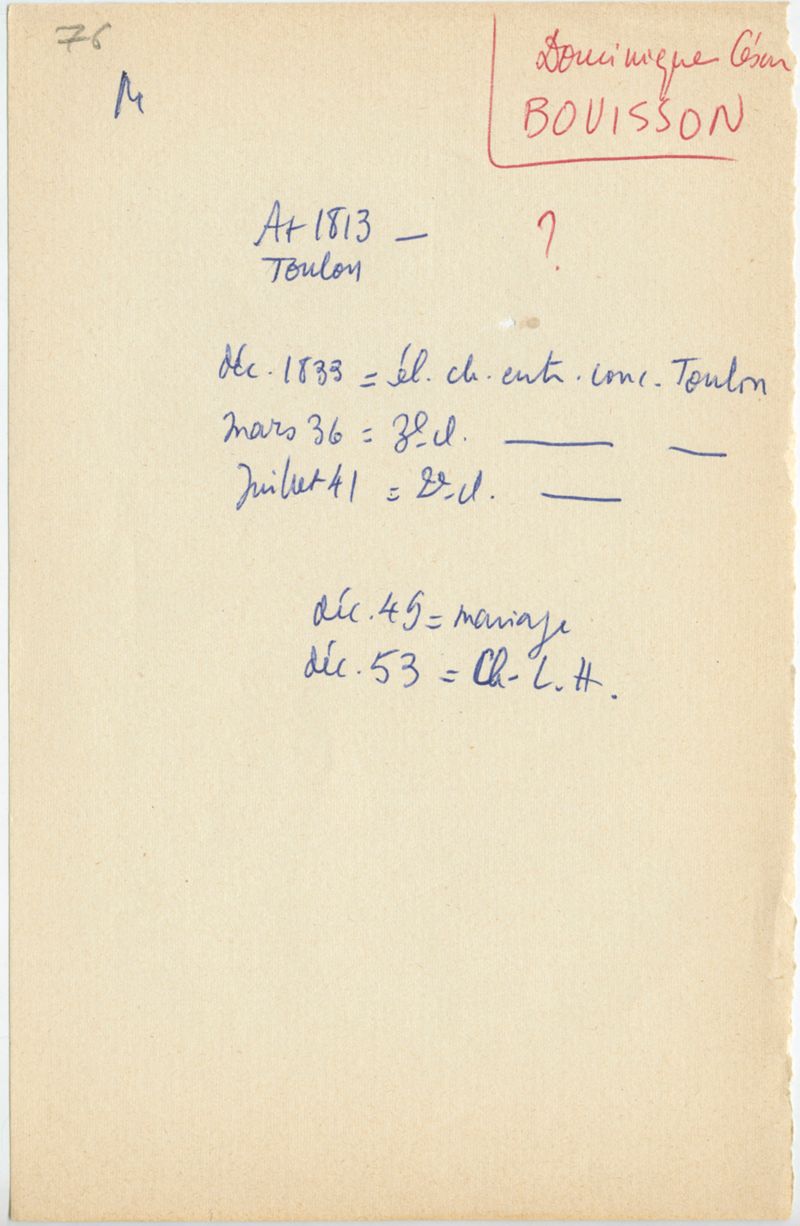 76
Dominique César
BOUISSON
M
At 1813 — ?
Toulon
déc. 1833 = él. ch. entr. conc. Toulon
mars 36 = 3e cl. —— —
Juillet 41 = 2e cl. ——
déc. 49 = mariage
déc. 53 = Ch. L. H.